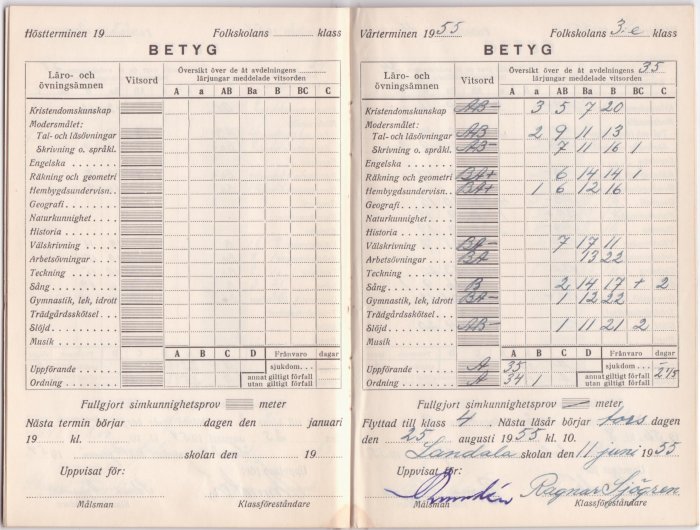 Höstterminen 19 Folkskolans klass
BETYG
Läro- och övningsämnen Vitsord Översikt över de åt avdelningens lärjungar meddelade vitsorden
A a AB Ba B BC C
Kristendomskunskap
Modersmålet:
Tal- och läsövningar
Skrivning o. språkl.
Engelska
Räkning och geometri
Hembygdsundervisn.
Geografi
Naturkunnighet
Historia
Välskrivning
Arbetsövningar
Teckning
Sång
Gymnastik, lek, idrott
Trädgårdsskötsel
Slöjd
Musik
A B C D Frånvaro dagar
Uppförande sjukdom
Ordning annat giltigt förfall
utan giltigt förfall
Fullgjort simkunnighetsprov meter
Nästa termin börjar dagen den januari
19 kl.
skolan den 19
Uppvisat för:
Målsman Klassföreståndare
Vårterminen 1955 Folkskolans 3.e klass
BETYG
Läro- och övningsämnen Vitsord Översikt över de åt avdelningens 35 lärjungar meddelade vitsorden
A a AB Ba B BC C
Kristendomskunskap AB- 3 5 7 20
Modersmålet:
Tal- och läsövningar AB 2 9 11 13
Skrivning o. språkl. AB- 7 11 16 1
Engelska
Räkning och geometri BA+ 6 14 14 1
Hembygdsundervisn. BA+ 1 6 12 16
Geografi
Naturkunnighet
Historia
Välskrivning BA- 7 17 11
Arbetsövningar BA 13 22
Teckning
Sång B 2 14 17 + 2
Gymnastik, lek, idrott BA- 1 12 22
Trädgårdsskötsel
Slöjd AB- 1 11 21 2
Musik
A B C D Frånvaro dagar
Uppförande A 35 sjukdom
Ordning A 34 1 annat giltigt förfall
utan giltigt förfall
Fullgjort simkunnighetsprov — meter
Flyttad till klass 4 Nästa läsår börjar tors dagen
den 25 augusti 1955 kl. 10.
Landala skolan den 11 juni 1955
Uppvisat för:
Ragnar Sjögren
Målsman Klassföreståndare